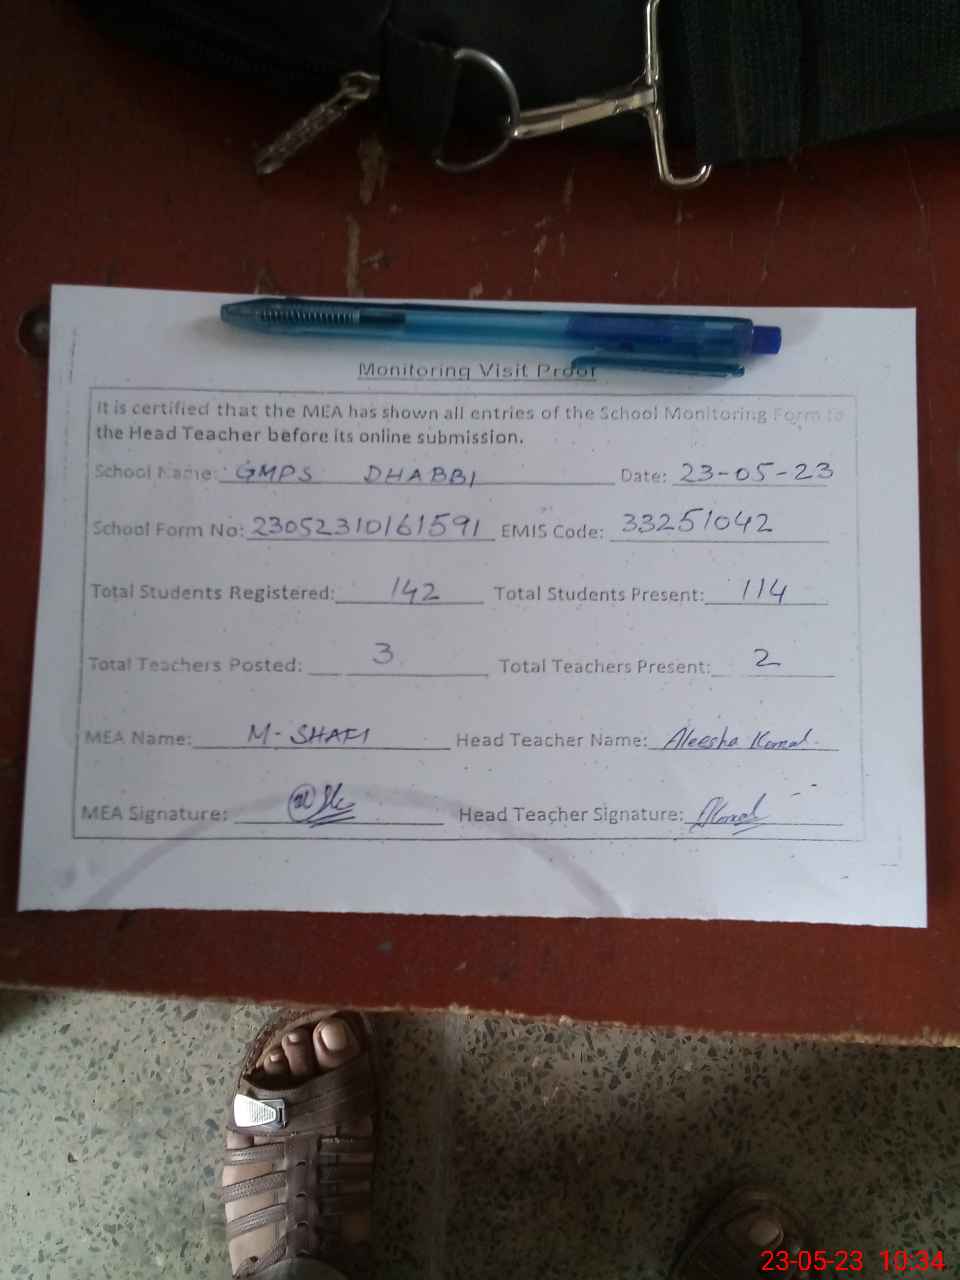 Monitoring Visit Proof
It is certified that the MEA has shown all entries of the School Monitoring Form to
the Head Teacher before its online submission.
School Name: GMPS DHABBI Date: 23-05-23
School Form No: 23052310161591 EMIS Code: 33251042
Total Students Registered: 142 Total Students Present: 114
Total Teachers Posted: 3 Total Teachers Present: 2
MEA Name: M. SHAFI Head Teacher Name: Aleesha Komal.
MEA Signature: Head Teacher Signature: AKomal
23-05-23 10:34